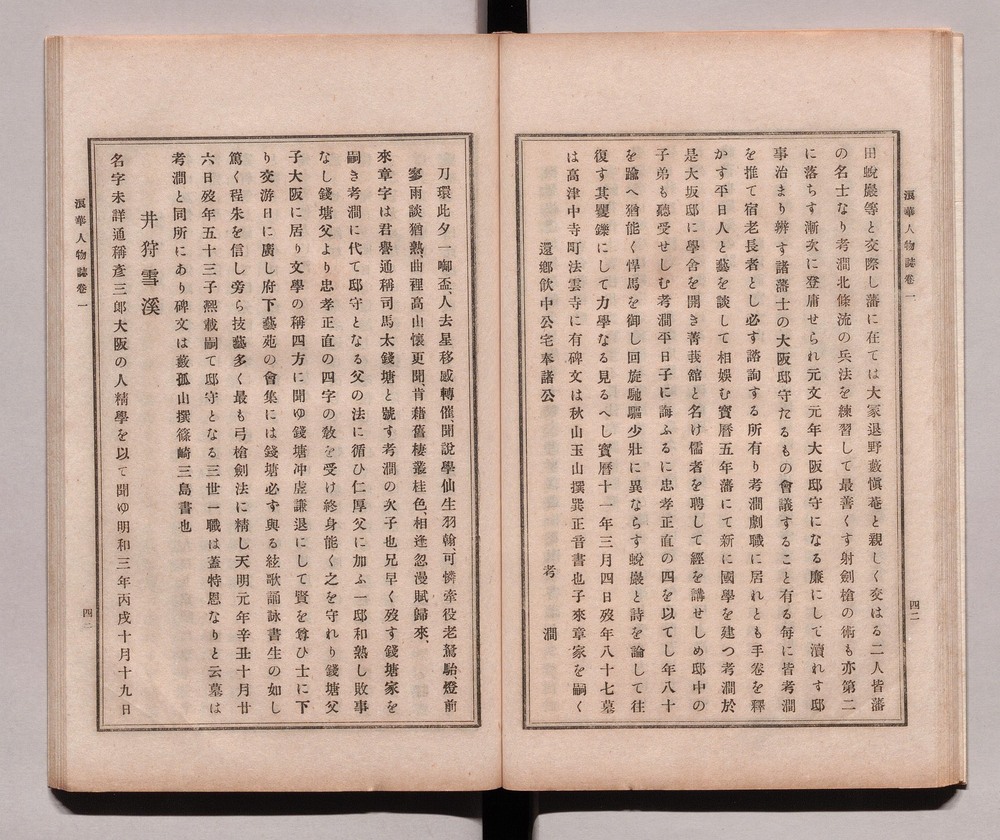 浪華人物誌卷一
四二
田蛻巖等と交際し藩に在ては大冢退野藪愼菴と親しく交はる二人皆藩
の名士なり考澗北條流の兵法を練習して最善くす射劍槍の術も亦第二
に落ちす漸次に登庸せられ元文元年大阪邸守になる廉にして瀆れす邸
事治まり辨す諸藩士の大阪邸守たるもの會議すること有る每に皆考澗
を推て宿老長者とし必す諮詢する所有り考澗劇職に居れとも手卷を釋
かす平日人と藝を談して相娛む寶曆五年藩にて新に國學を建つ考澗於
是大坂邸に學舎を開き菁莪館と名け儒者を聘して經を講せしめ邸中の
子弟も聽受せしむ考澗平日子に誨ふるに忠孝正直の四を以てし年八十
を踰へ猶能く悍馬を御し回旋馳驅少壯に異ならす蛻巖と詩を論して往
復す其矍鑠にして力學なる見るへし寶曆十一年三月四日歿年八十七墓
は高津中寺町法雲寺に有碑文は秋山玉山撰巽正音書也子來章家を嗣く
還鄕飮中公宅奉諸公 考澗
刀環此夕一啣盃、人去星移感轉催聞說學仙生羽翰、可憐牽役老駑駘燈前
寥雨談猶熟、曲裡高山懷更聞、肯藉舊棲叢桂色、相逢忽漫賦歸來、
來章字は君譽通稱司馬太錢塘と號す考澗の次子也兄早く歿す錢塘家を
嗣き考澗に代て邸守となる父の法に循ひ仁厚父に加ふ一邸和熟し敗事
なし錢塘父より忠孝正直の四字の敎を受け終身能く之を守れり錢塘父
子大阪に居り文學の稱四方に聞ゆ錢塘冲虛謙退にして賢を尊ひ士に下
り交游日に廣し府下藝苑の會集には錢塘必す與る絃歌誦詠書生の如し
篤く程朱を信し旁ら技藝多く最も弓槍劍法に精し天明元年辛丑十月廿
六日歿年五十三子熈載嗣て邸守となる三世一職は蓋特恩なりと云墓は
考澗と同所にあり碑文は藪孤山撰篠崎三島書也
井狩雪溪
名字未詳通稱彥三郞大阪の人精學を以て聞ゆ明和三年丙戌十月十九日
浪華人物誌卷一
四三